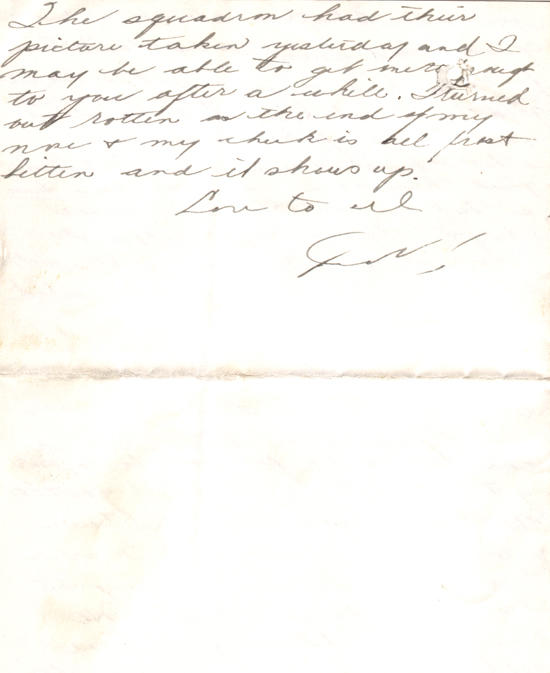 The squadron had their
picture taken yesterday and I
may be able to get
to you after a while. I turned
out rotten as the end of my
nose & my cheek is all frost
bitten and it shows up.
Love to all